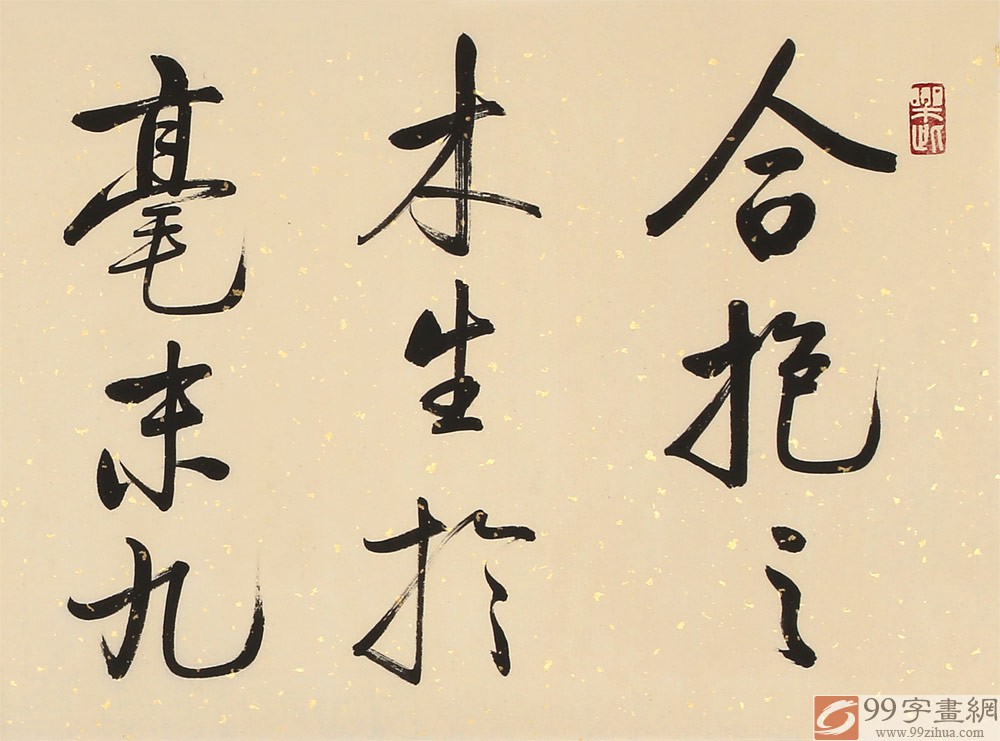 合抱之
木生於
毫末九
99字畫網
www.99zihua.com